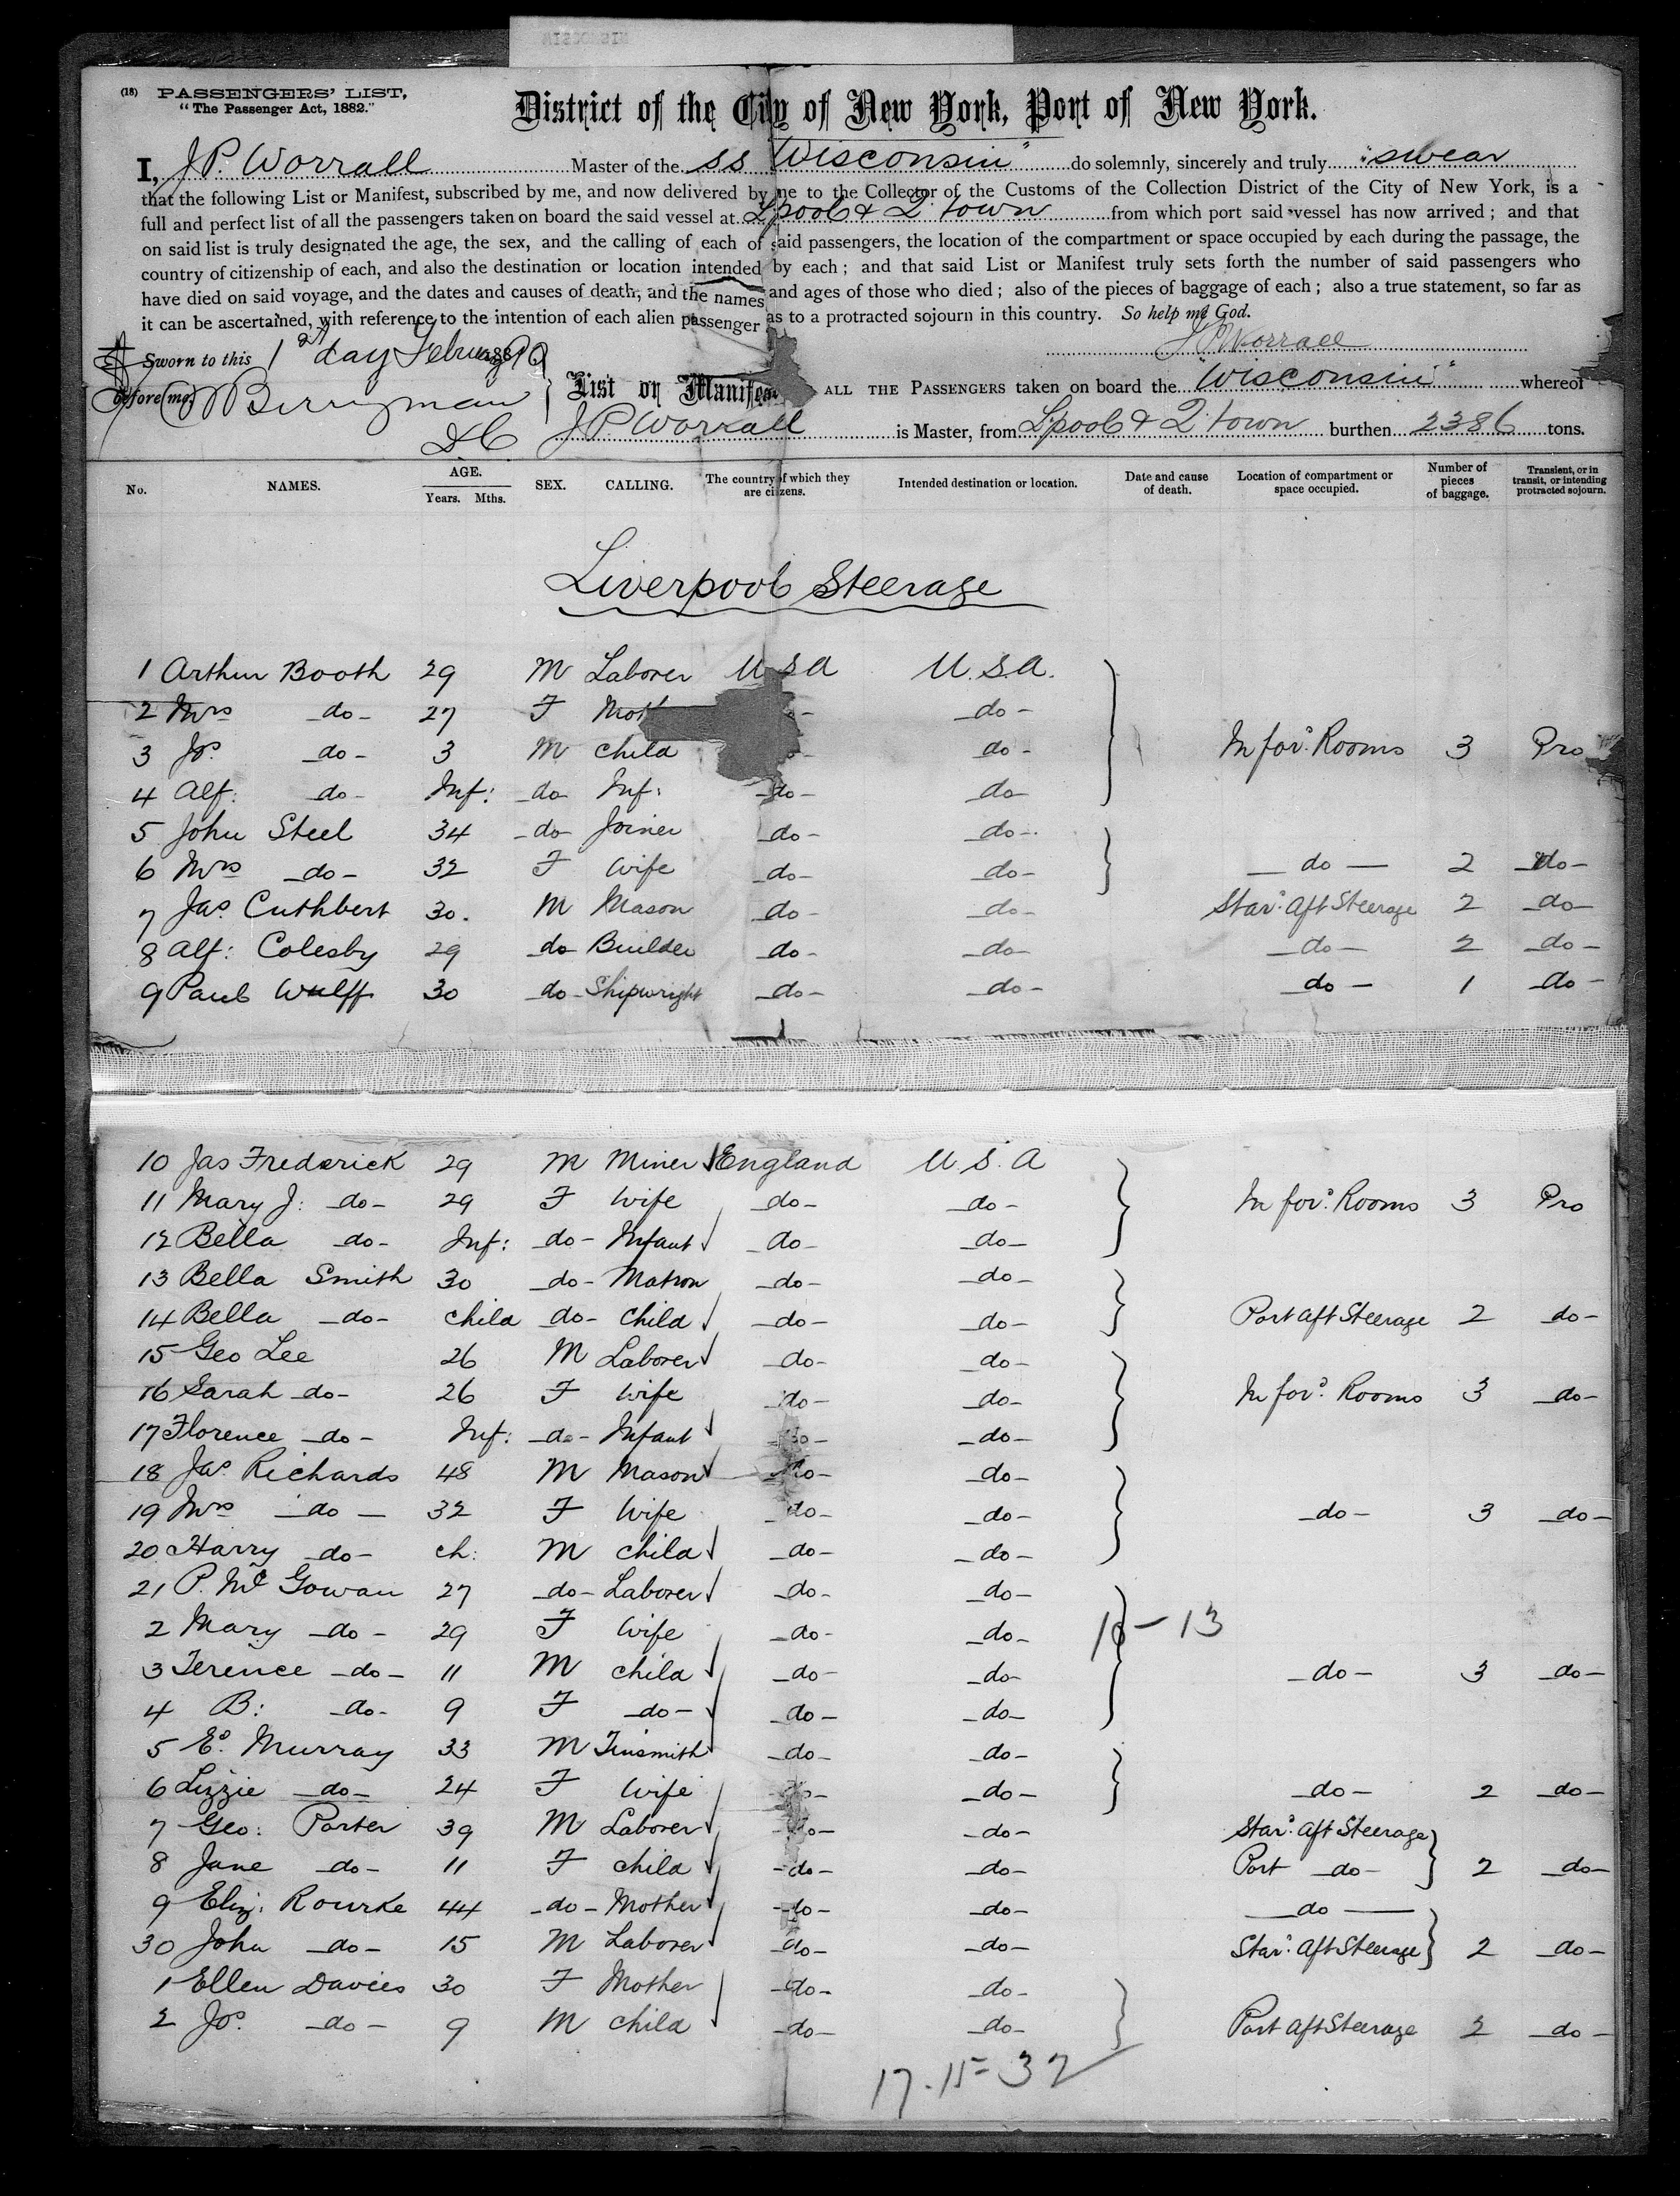 (18) PASSENGERS' LIST,
"The Passenger Act, 1882."
District of the City of New York, Port of New York.
I, J P. Worrall Master of the SS "Wisconsin" do solemnly, sincerely and truly "swear
that the following List or Manifest, subscribed by me, and now delivered by me to the Collector of the Customs of the Collection District of the City of New York, is a
full and perfect list of all the passengers taken on board the said vessel at L'pool & Q'town from which port said vessel has now arrived; and that
on said list is truly designated the age, the sex, and the calling of each of said passengers, the location of the compartment or space occupied by each during the passage, the
country of citizenship of each, and also the destination or location intended by each; and that said List or Manifest truly sets forth the number of said passengers who
have died on said voyage, and the dates and causes of death, and the names and ages of those who died; also of the pieces of baggage of each; also a true statement, so far as
it can be ascertained, with reference to the intention of each alien passenger as to a protracted sojourn in this country. So help me God.
Sworn to this 1st day February 90 J P Worrall
before me List or Manifest ALL THE PASSENGERS taken on board the "Wisconsin" whereof
Berryman
DC J P Worrall is Master, from L'pool & Q'town burthen 2386 tons.
No. NAMES. AGE. Years. Mths. SEX. CALLING. The country of which they are citizens. Intended destination or location. Date and cause of death. Location of compartment or space occupied. Number of pieces of baggage. Transient, or in transit, or intending protracted sojourn.
Liverpool Steerage
1 Arthur Booth 29 M Laborer U S A U.S.A.
2 Mrs do 27 F Moth do
3 Jos. do 3 M child do In for: Rooms 3 Pro
4 Alf: do Inf: do Inf: do do
5 John Steel 34 do Joiner do do
6 Mrs do 32 F Wife do do do 2 do
7 Jas. Cuthbert 30. M Mason do do Star: Aft Steerage 2 do
8 Alf: Colesby 29 do Builder do do do 2 do
9 Paul Wulff 30 do Shipwright do do do 1 do
10 Jas Frederick 29 M Miner England U.S.A
11 Mary J: do 29 F Wife do do In for: Rooms 3 Pro
12 Bella do Inf: do Infant do do
13 Bella Smith 30 do Matron do do
14 Bella do child do child do do Port Aft Steerage 2 do
15 Geo Lee 26 M Laborer do do
16 Sarah do 26 F Wife do do In for: Rooms 3 do
17 Florence do Inf: do Infant do do
18 Jas. Richards 48 M Mason do do
19 Mrs do 32 F Wife do do do 3 do
20 Harry do ch: M child do do
21 P. McGowan 27 do Laborer do do
2 Mary do 29 F Wife do do 16 - 13
3 Terence do 11 M child do do do 3 do
4 B: do 9 F do do do
5 Ed. Murray 33 M Tinsmith do do
6 Lizzie do 24 F Wife do do do 2 do
7 Geo: Porter 39 M Laborer do do Star: Aft Steerage
8 Jane do 11 F child do do Port do 2 do
9 Eliz: Rourke 44 do Mother do do do
30 John do 15 M Laborer do do Star: Aft Steerage 2 do
1 Ellen Davies 30 F Mother do do
2 Jos. do 9 M child do do Port Aft Steerage 2 do
17.15 = 32